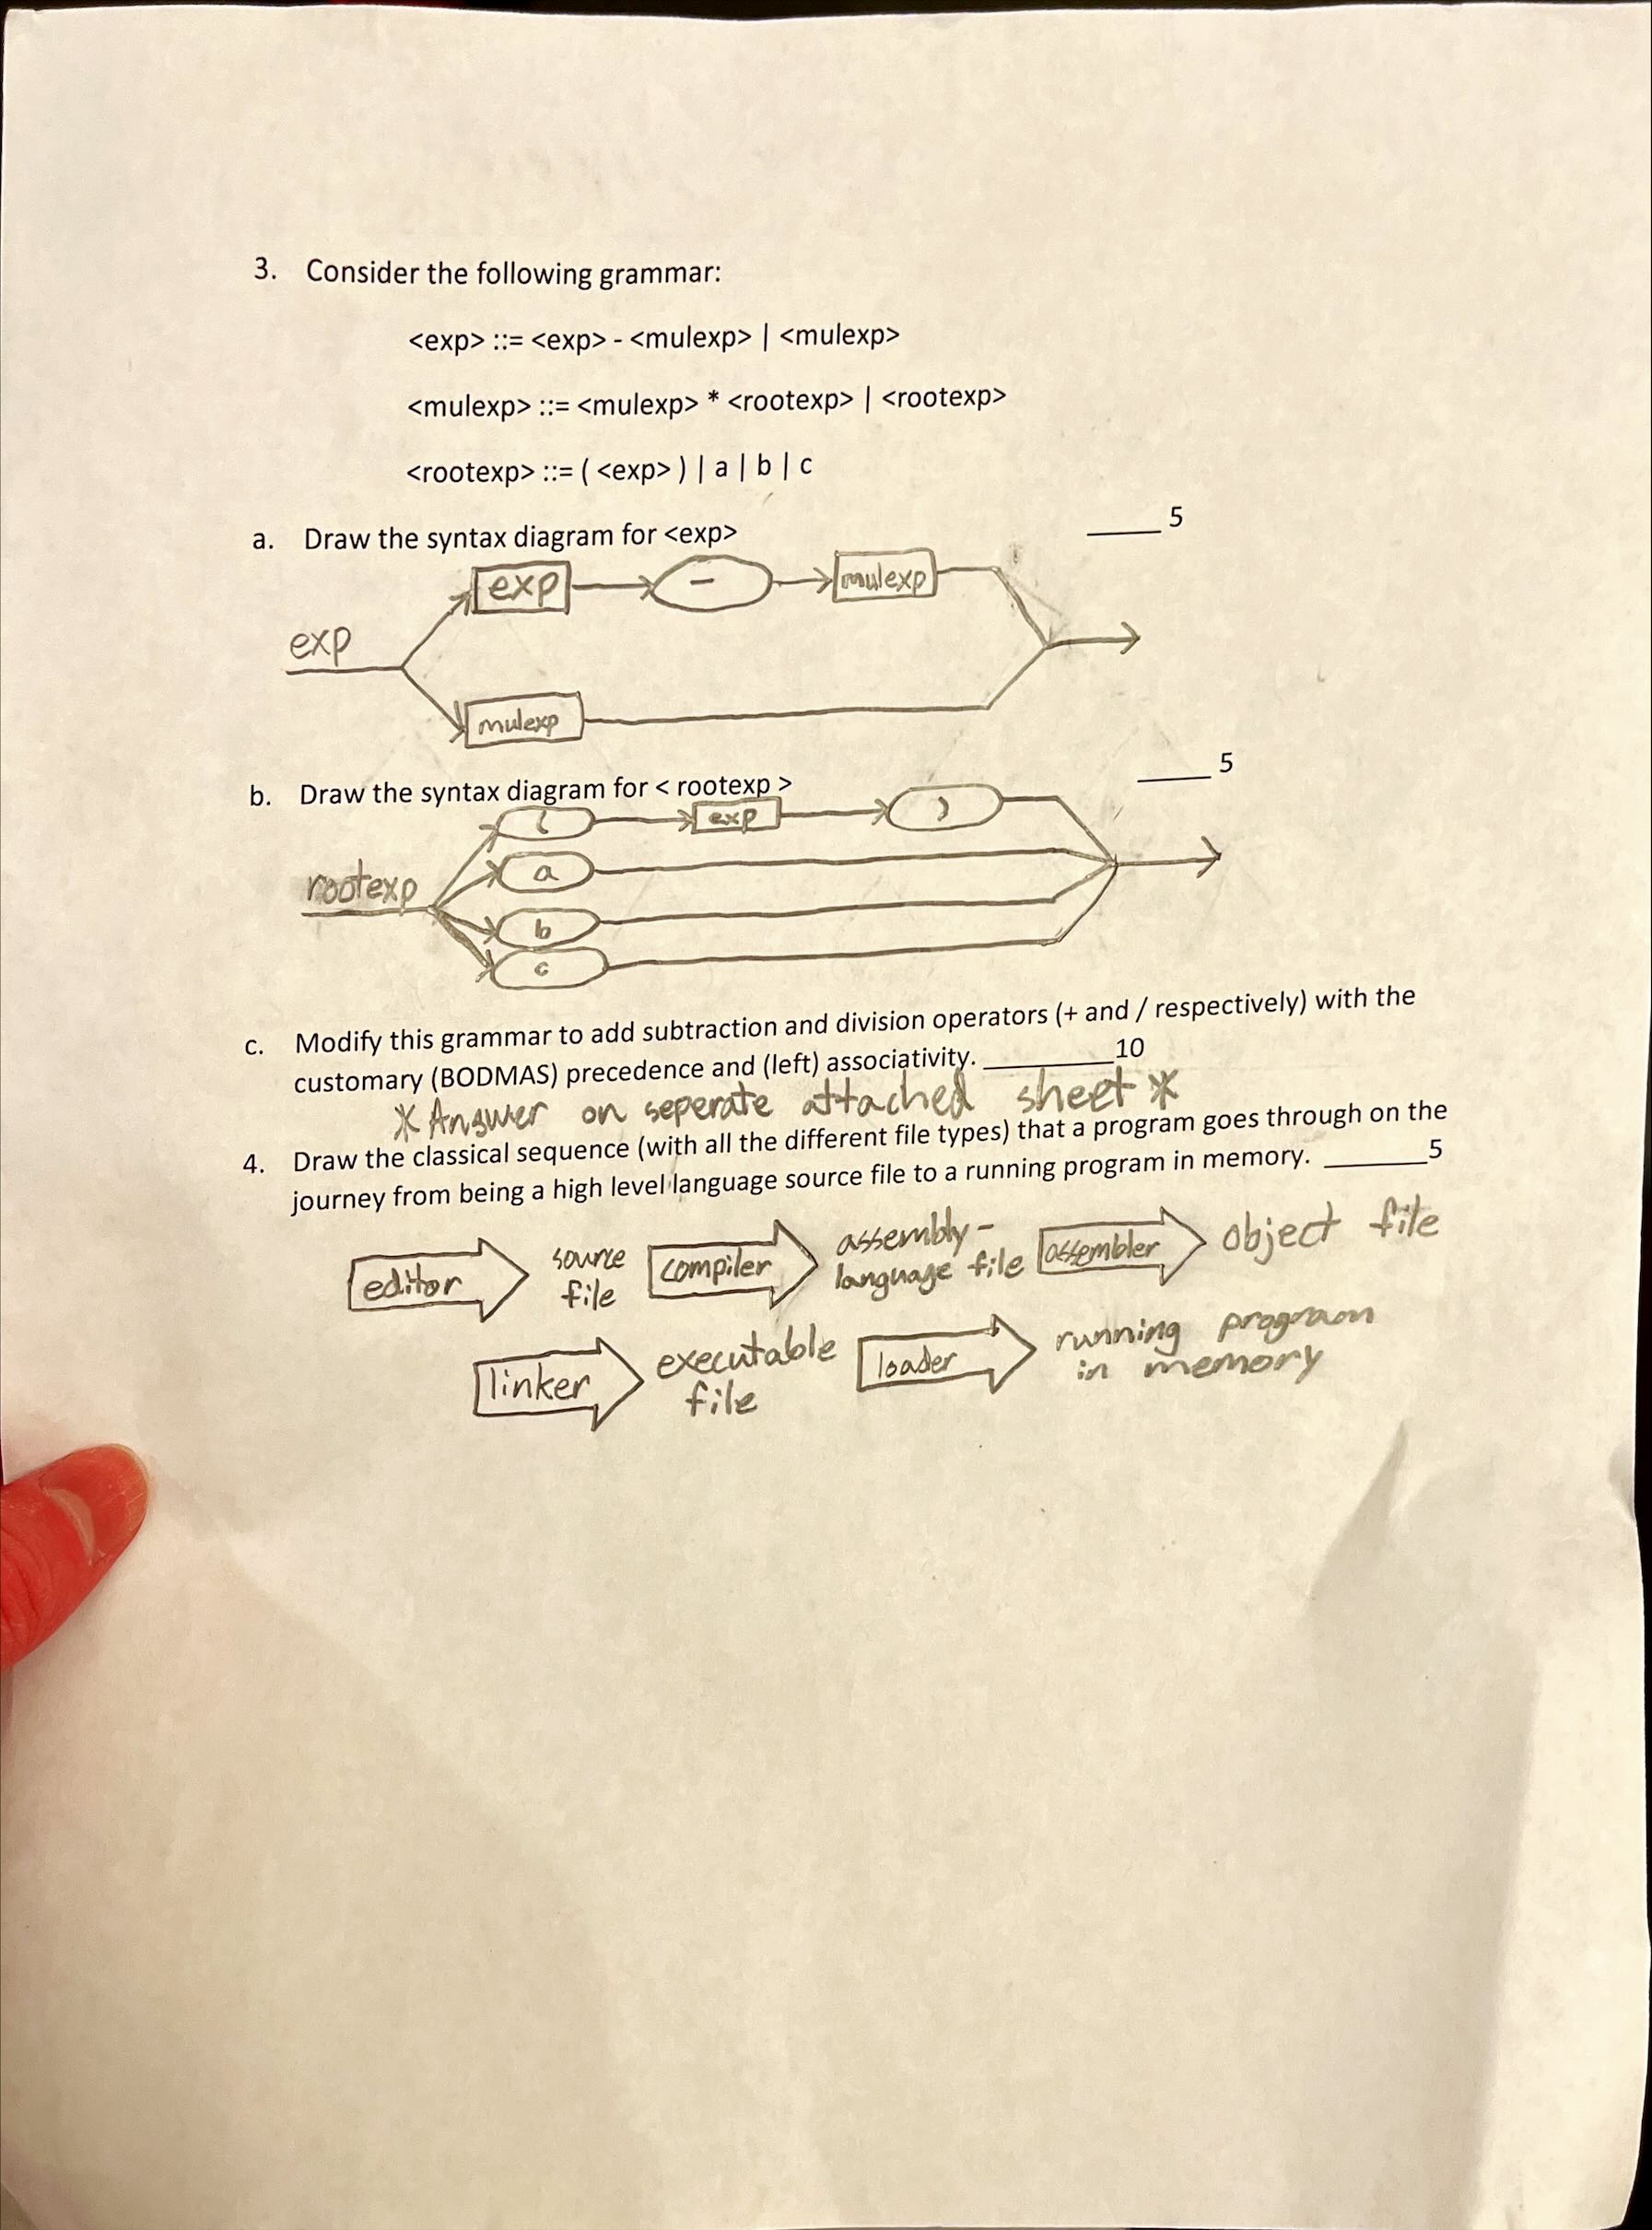 3. Consider the following grammar:
<exp> ::= <exp> - <mulexp> | <mulexp>
<mulexp> ::= <mulexp> * <rootexp> | <rootexp>
<rootexp> ::= ( <exp> ) | a | b | c
a. Draw the syntax diagram for <exp> ____ 5
exp - mulexp
exp
mulexp
b. Draw the syntax diagram for < rootexp > ____ 5
( exp )
a
rootexp
b
c
c. Modify this grammar to add subtraction and division operators (+ and / respectively) with the
customary (BODMAS) precedence and (left) associativity. ________10
* Answer on seperate attached sheet *
4. Draw the classical sequence (with all the different file types) that a program goes through on the
journey from being a high level language source file to a running program in memory. ______5
editor source file compiler assembly-language file assembler object file
linker executable file loader running program in memory